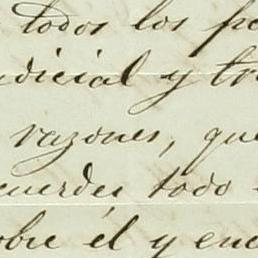 todos los pe
udicial y tra
razones, que
cuerdes todo
obre él y ene